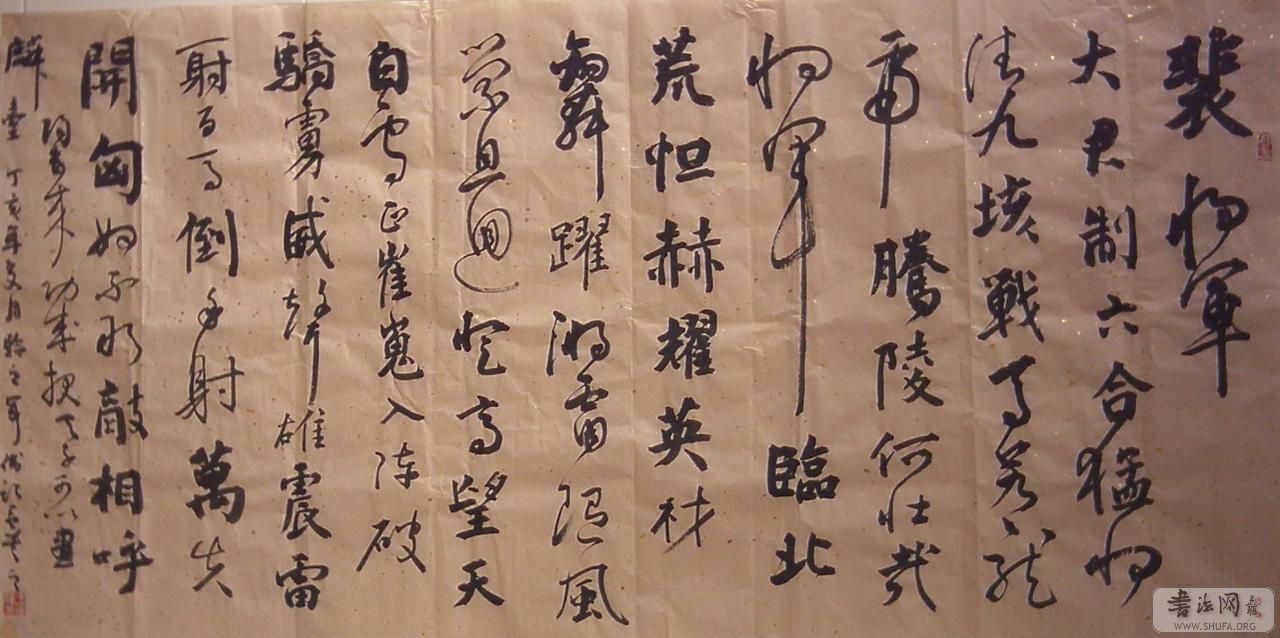 裴將軍
大君制六合猛將
清九垓戰馬若龍
虎騰陵何壯哉
將軍臨北
荒烜赫耀英材
舞躍游雷隨風
縈且迴登高望天
白雲正崔嵬入陣破
驕虜威聲雄震雷
一射百馬倒再射萬夫
開匈奴不敢敵相呼
歸去來功成報天子可以畫
麟臺 丁亥年月臨之
书法网
WWW.SHUFA.ORG